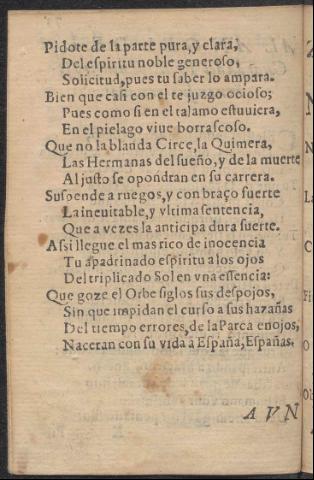 Pidote de la parte pura, y clara,
Del espiritu noble generoso,
Solicitud, pues tu saber lo ampara.
Bien que casi con el te juzgo ocioso;
Pues como si en el talamo estuuiera,
En el pielago viue borrascoso.
Que no la blanda Circe, la Quimera,
Las Hermanas del sueño, y de la muerte
Al justo se opondran en su carrera.
Suspende a ruegos, y con braço fuerte
La ineuitable, y vltima sentencia,
Que a vezes la anticipa dura suerte.
Assi llegue el mas rico de inocencia
Tu apadrinado espiritu a los ojos
Del triplicado Sol en vna essencia:
Que goze el Orbe siglos sus despojos,
Sin que impidan el curso a sus hazañas
Del tiempo errores, de la Parca enojos,
Naceran con su vida a España, Españas.
AVN